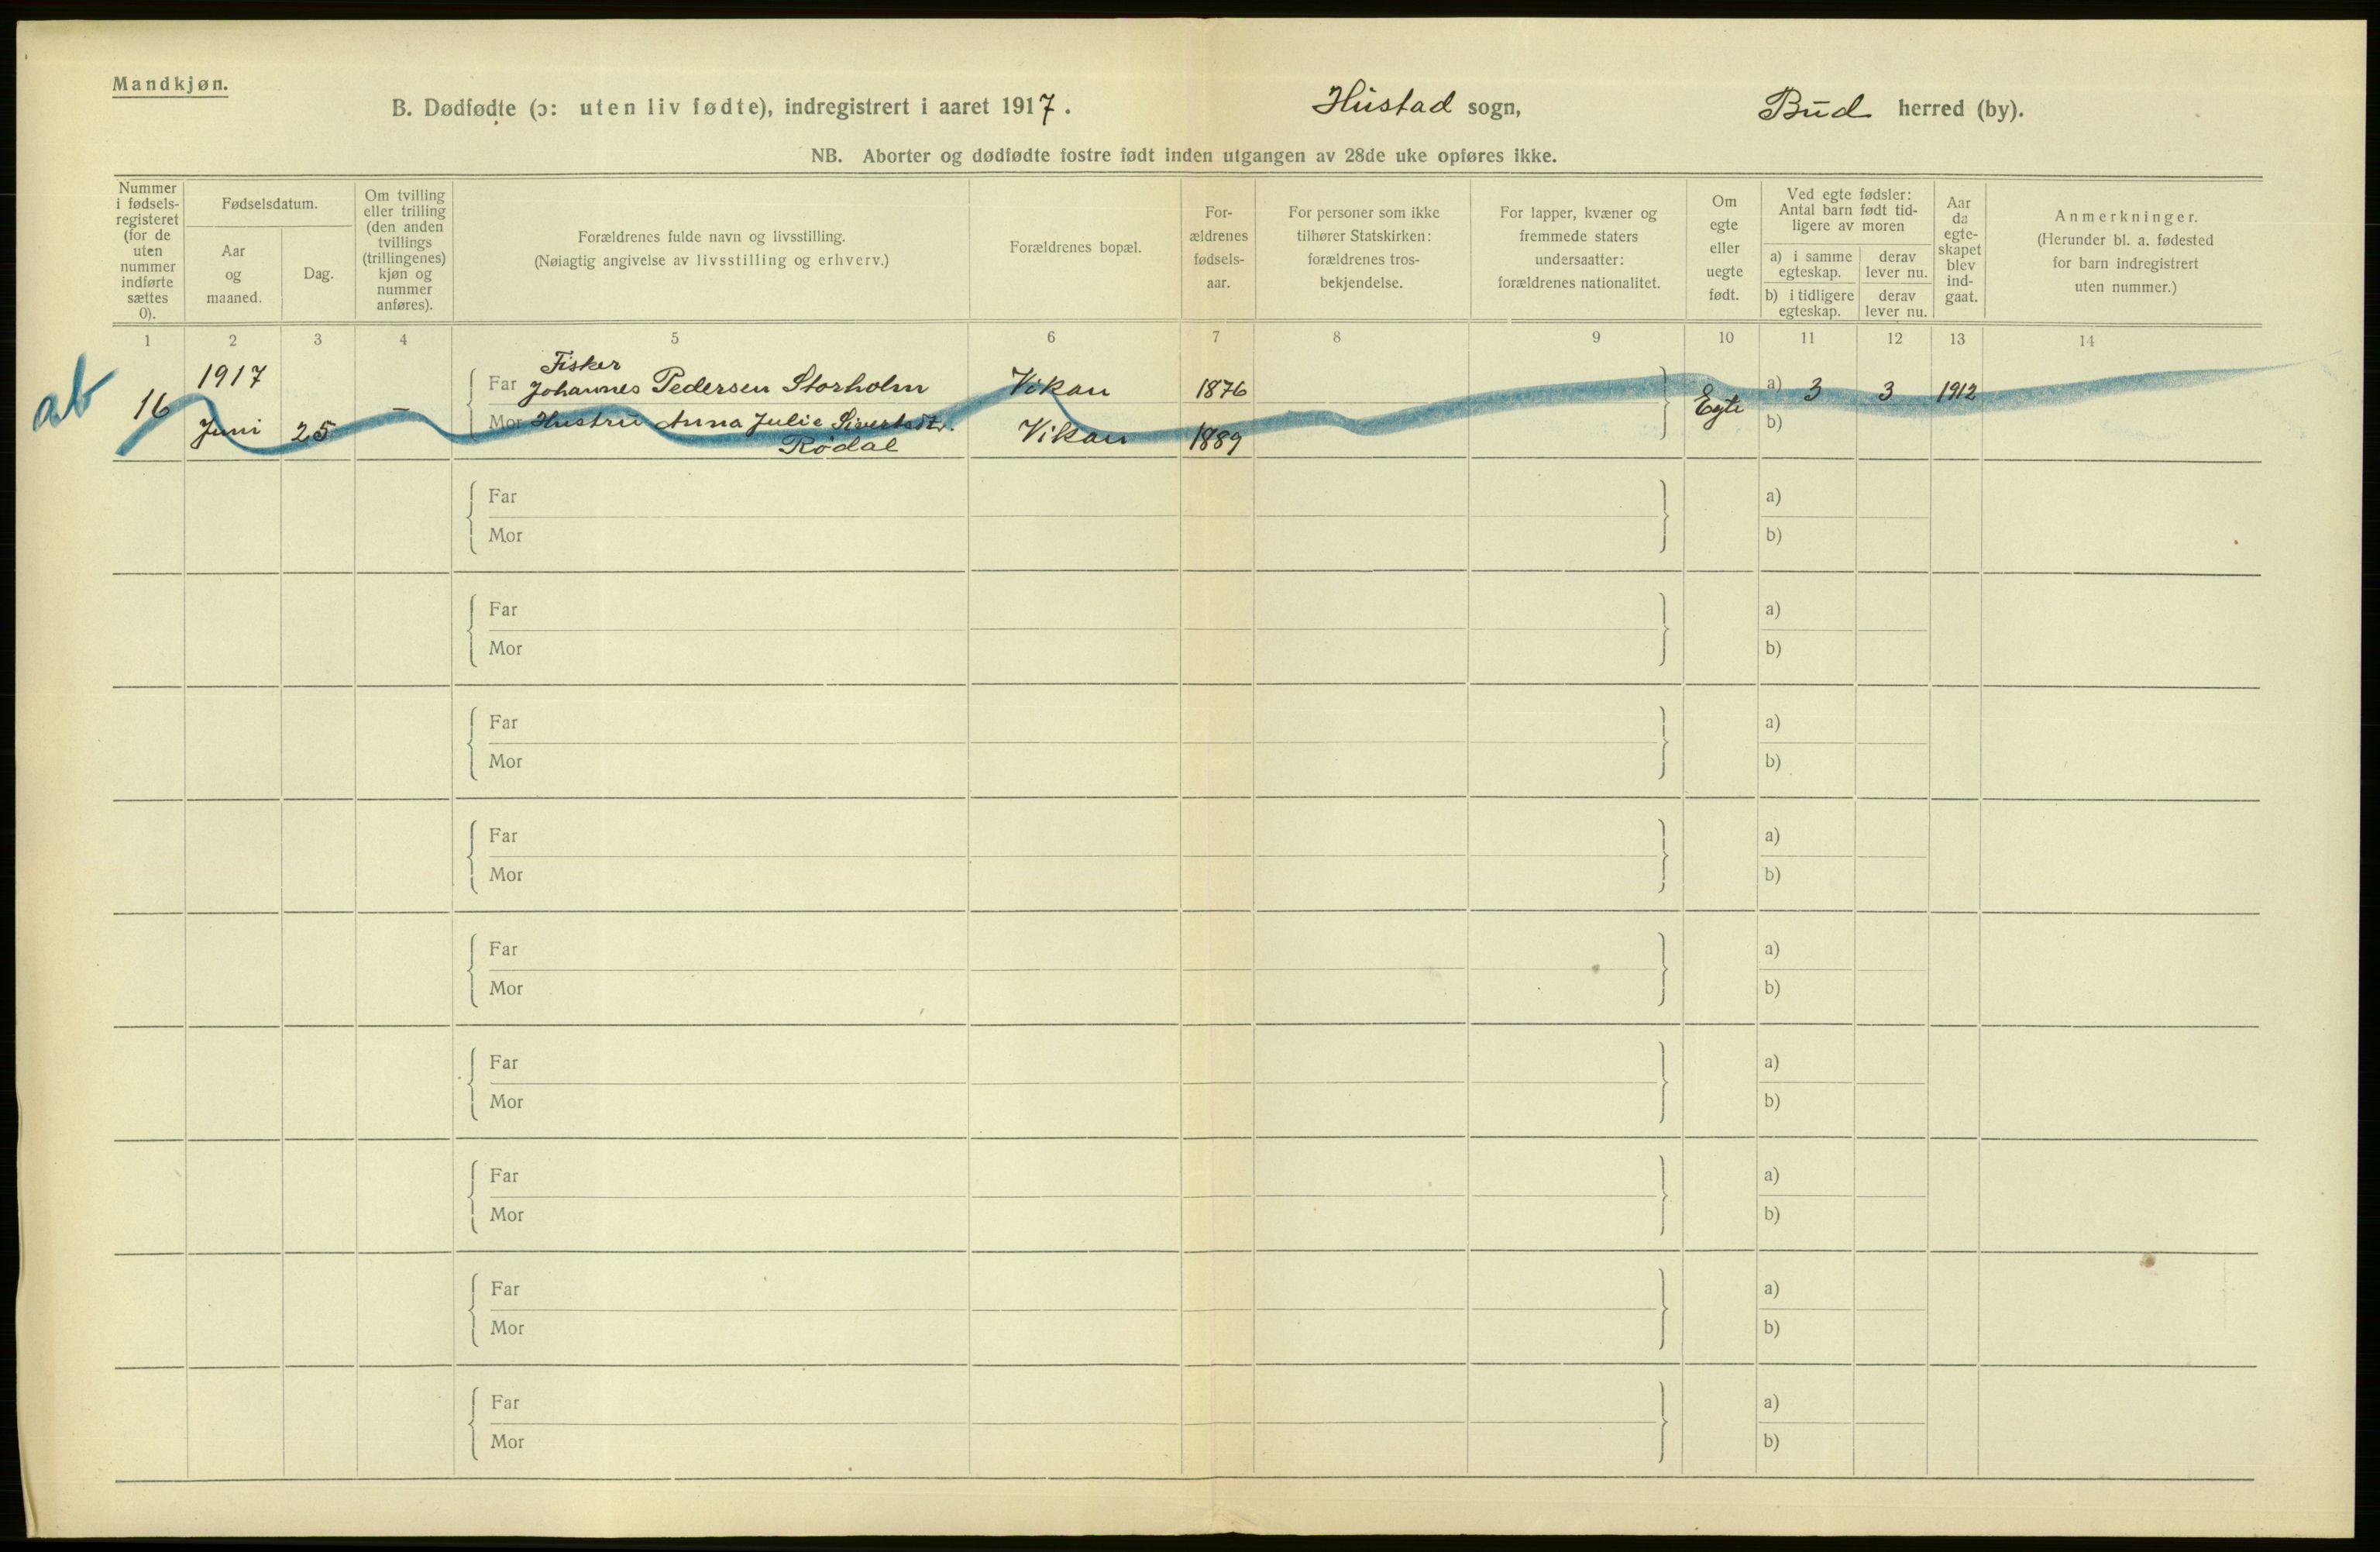 Mandkjøn.
B. Dødfødte (ɔ: uten liv fødte), indregistrert i aaret 1917. Hustad sogn, Bud herred (by).
NB. Aborter og dødfødte fostre født inden utgangen av 28de uke opføres ikke.
Nummer
i fødsels-
registeret
(for de
uten
nummer
indførte
sættes
0).
Fødselsdatum.
Aar
og
maaned.
Dag.
Om tvilling
eller trilling
(den anden
tvillings
(trillingenes)
kjøn og
nummer
anføres).
Forældrenes fulde navn og livsstilling.
(Nøiagtig angivelse av livsstilling og erhverv.)
Forældrenes bopæl.
For-
ældrenes
fødsels-
aar.
For personer som ikke
tilhører Statskirken:
forældrenes tros-
bekjendelse.
For lapper, kvæner og
fremmede staters
undersaatter:
forældrenes nationalitet.
Om
egte
eller
uegte
født.
Ved egte fødsler:
Antal barn født tid-
ligere av moren
a) i samme
egteskap.
derav
lever nu.
b) i tidligere
egteskap.
derav
lever nu.
Aar
da
egte-
skapet
blev
ind-
gaat.
Anmerkninger.
(Herunder bl. a. fødested
for barn indregistrert
uten nummer.)
1 2 3 4 5 6 7 8 9 10 11 12 13 14
ab
16
1917
Juni 25 –
Fisker
Far Johannes Pedersen Storholm Vikan 1876
Mor Hustru Anna Julie Sivertsdtr.
Rødal
Vikan 1889
Egte
a) 3 3 1912
b)
Far a)
Mor b)
Far a)
Mor b)
Far a)
Mor b)
Far a)
Mor b)
Far a)
Mor b)
Far a)
Mor b)
Far a)
Mor b)
Far a)
Mor b)
Far a)
Mor b)